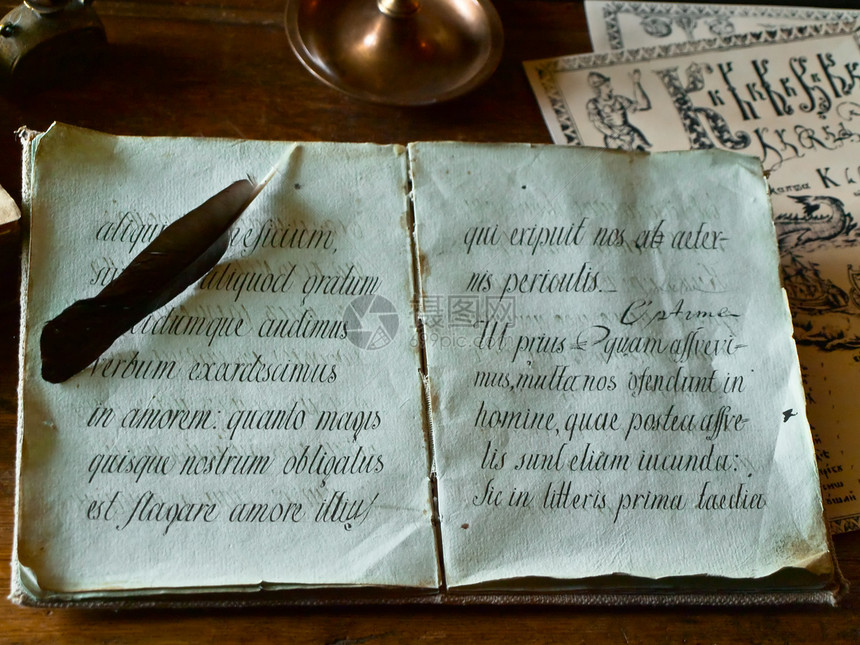 aliquod beneficium,
aliquod gratum
audimus
verbum exardescimus
in amorem: quanto magis
quisque nostrum obligatus
est flagare amore illius!
qui eripuit nos ab aeter-
nis periculis.
Optime
Ut prius quam assvevi-
mus, multa nos ofendunt in
homine, quae postea assve-
tis sunt etiam iucunda:
Sic in litteris prima taedia
К